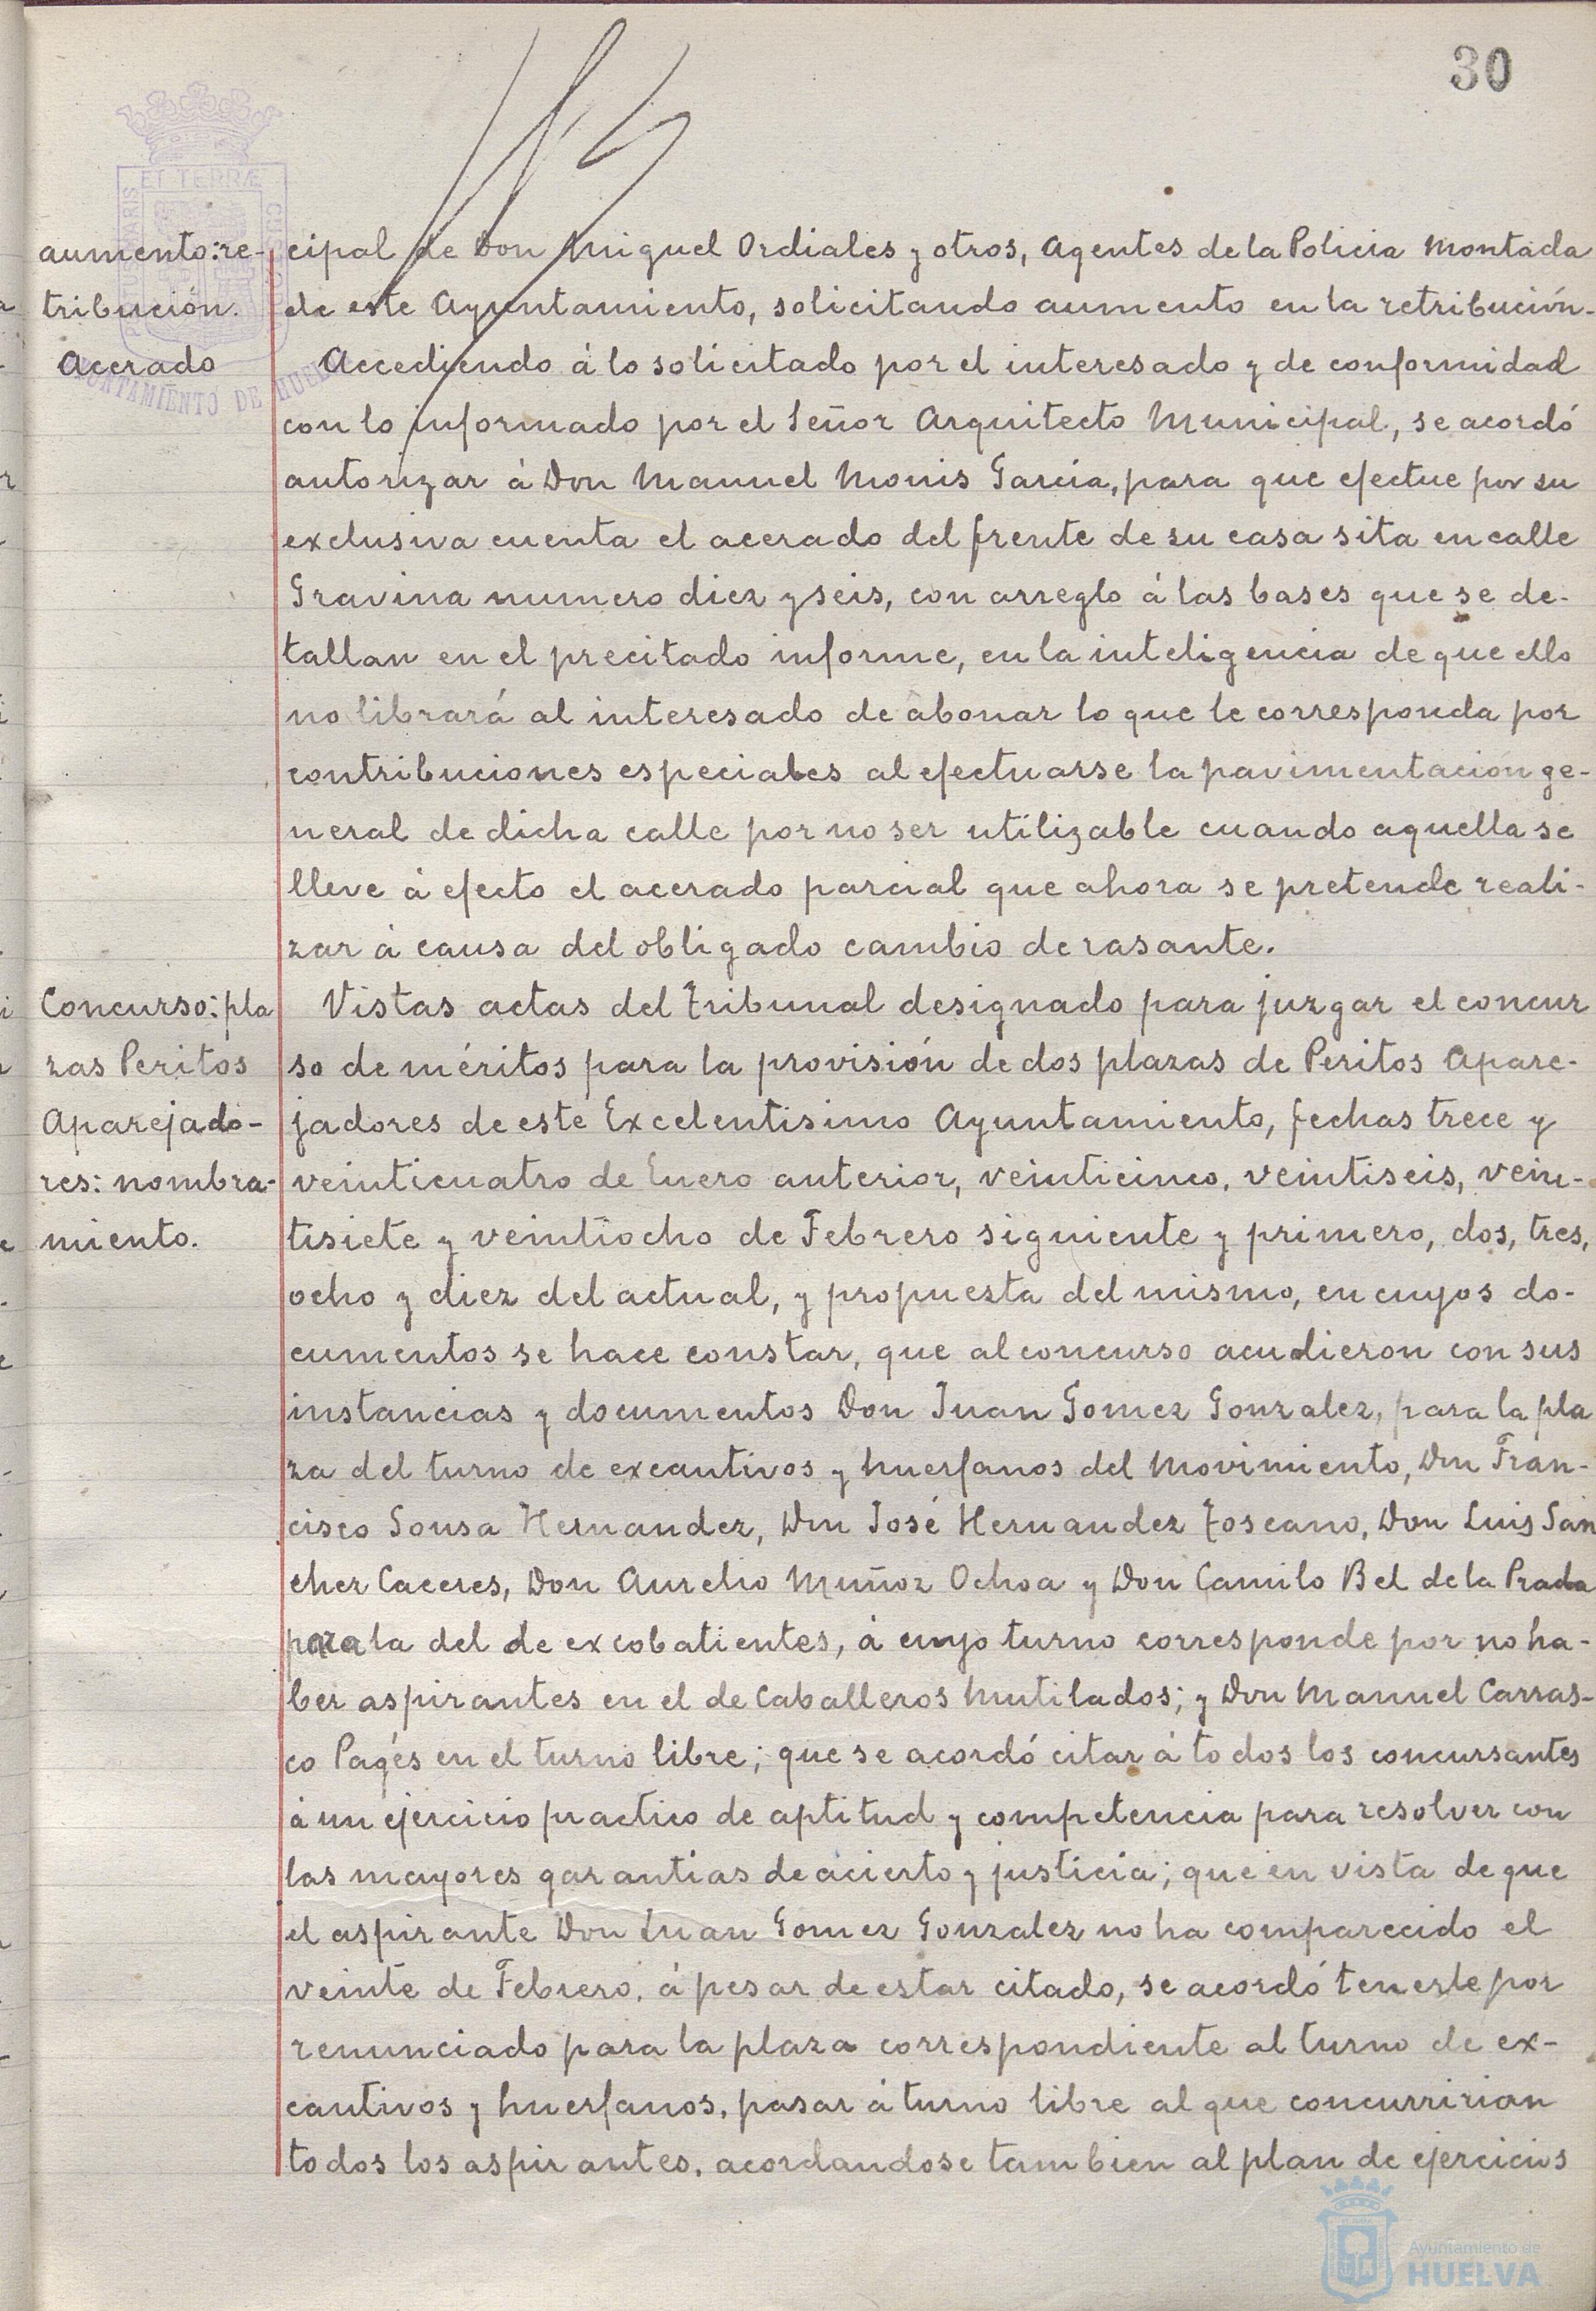 30
aumento: re-
tribución.
Acerado
cipal de Don Miguel Ordiales y otros, Agentes de la Policia Montada
de este Ayuntamiento, solicitando aumento en la retribución.
Accediendo á lo solicitado por el interesado y de conformidad
con lo informado por el Señor Arquitecto Municipal, se acordó
autorizar á Don Manuel Monis Garcia, para que efectue por su
exclusiva cuenta el acerado del frente de su casa sita en calle
Gravina numero diez y seis, con arreglo á las bases que se de-
tallan en el precitado informe, en la inteligencia de que ello
no librará al interesado de abonar lo que le corresponda por
contribuciones especiales al efectuarse la pavimentación ge-
neral de dicha calle por no ser utilizable cuando aquella se
lleve á efecto el acerado parcial que ahora se pretende reali-
zar á causa del obligado cambio de rasante.
Concurso: pla
zas Peritos
Aparejado-
res: nombra-
miento.
Vistas actas del Tribunal designado para juzgar el concur
so de méritos para la provisión de dos plazas de Peritos Apare-
jadores de este Excelentisimo Ayuntamiento, fechas trece y
veinticuatro de Enero anterior, veinticinco, veintiseis, vein-
tisiete y veintiocho de Febrero siguiente y primero, dos, tres,
ocho y diez del actual, y propuesta del mismo, en cuyos do-
cumentos se hace constar, que al concurso acudieron con sus
instancias y documentos Don Juan Gomez Gonzalez, para la pla
za del turno de excautivos y huerfanos del Movimiento, Don Fran-
cisco Sousa Hernandez, Don José Hernandez Toscano, Don Luis San
chez Caceres, Don Aurelio Muñoz Ochoa y Don Camilo Bel de la Prada
para la del de excobatientes, á cuyo turno corresponde por no ha-
ber aspirantes en el de Caballeros Mutilados; y Don Manuel Carras-
co Pagés en el turno libre; que se acordó citar á todos los concursantes
á un ejercicio practico de aptitud y competencia para resolver con
las mayores garantias de acierto y justicia; que en vista de que
el aspirante Don Juan Gomez Gonzalez no ha comparecido el
veinte de Febrero, á pesar de estar citado, se acordó tenerle por
renunciado para la plaza correspondiente al turno de ex-
cautivos y huerfanos, pasar á turno libre al que concurririan
todos los aspirantes, acordandose tambien al plan de ejercicios
ET TERRÆ
AYUNTAMIENTO DE HUEL
Ayuntamiento de
HUELVA